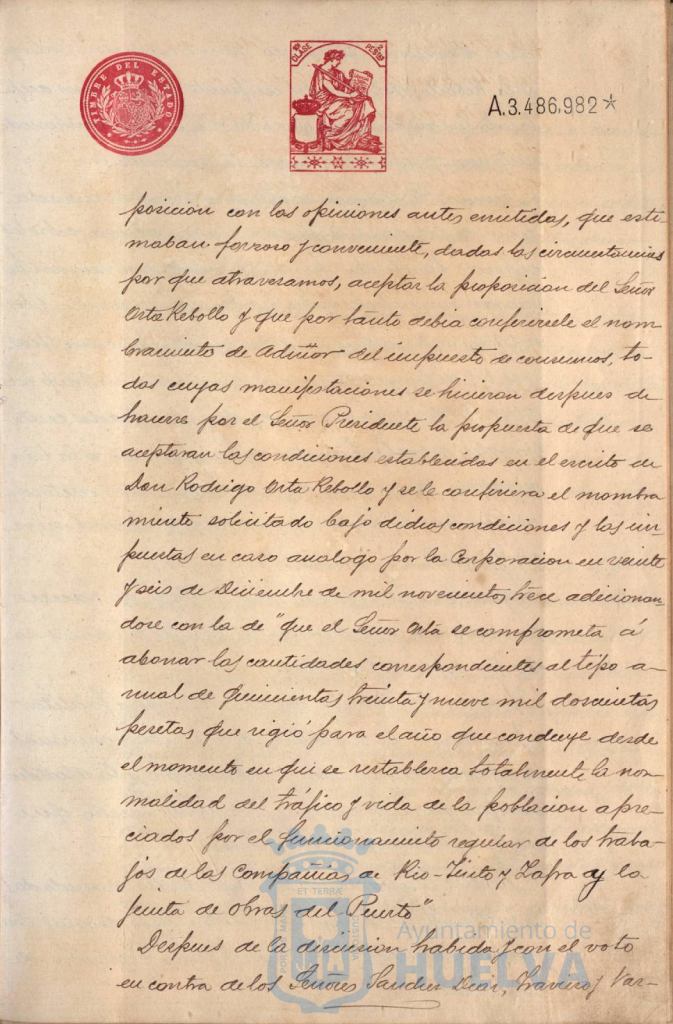 TIMBRE DEL ESTADO
CLASE 10ª
PESETAS 2
A.3.486.982*
posicion con las opiniones antes emitidas, que esti-
maban forzoso y conveniente, dadas las circunstancias
por que atravesamos, aceptar la proposicion del Señor
Orta Rebollo y que por tanto debia conferirsele el nom-
bramiento de Admõr del impuesto de consumos, to-
das cuyas manifestaciones se hicieron despues de
hacerse por el Señor Presidente la propuesta de que se
aceptaran las condiciones establecidas en el escrito de
Don Rodrigo Orta Rebollo y se le confiriera el nombra
miento solicitado bajo dichas condiciones y las im-
puestas en caso analogo por la Corporacion en veinte
y seis de Diciembre de mil novecientos trece adicionan-
dose con la de "que el Señor Orta se comprometa á
abonar las cantidades correspondientes al tipo a-
nual de quinientas treinta y nueve mil doscientas
pesetas que rigió para el año que concluye desde
el momento en que se restablezca totalmente la nor-
malidad del tráfico y vida de la poblacion apre-
ciados por el funcionamiento regular de los traba-
jos de las Compañias de Rio-Tinto y Zafra y la
Junta de Obras del Puerto"
Despues de la discusion habida y con el voto
en contra de los Señores Sanchez Diaz, Traviesoy Var-
Ayuntamiento de
HUELVA